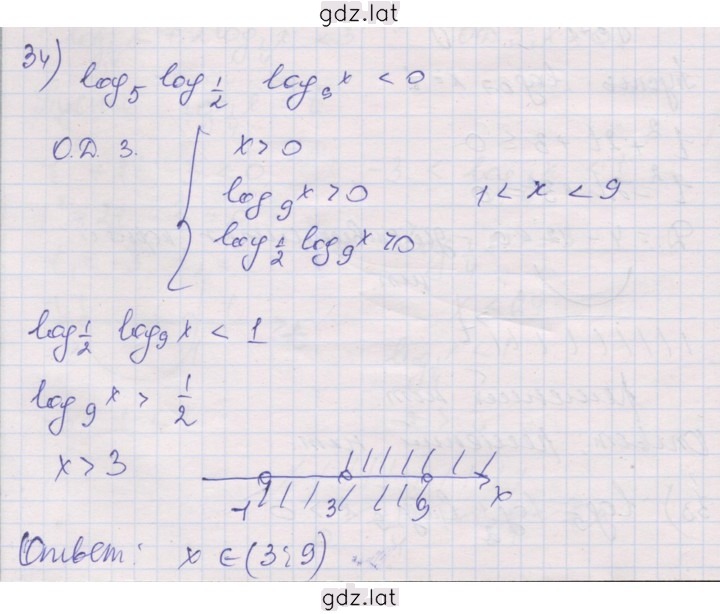 gdz.lat
34) log₅ log_{1/2} log₉ x < 0
О.Д.З. { x > 0
log₉ x > 0 1 < x < 9
log_{1/2} log₉ x > 0
log_{1/2} log₉ x < 1
log₉ x > 1/2
x > 3
1 3 9 x
Ответ: x ∈ (3; 9)
gdz.lat